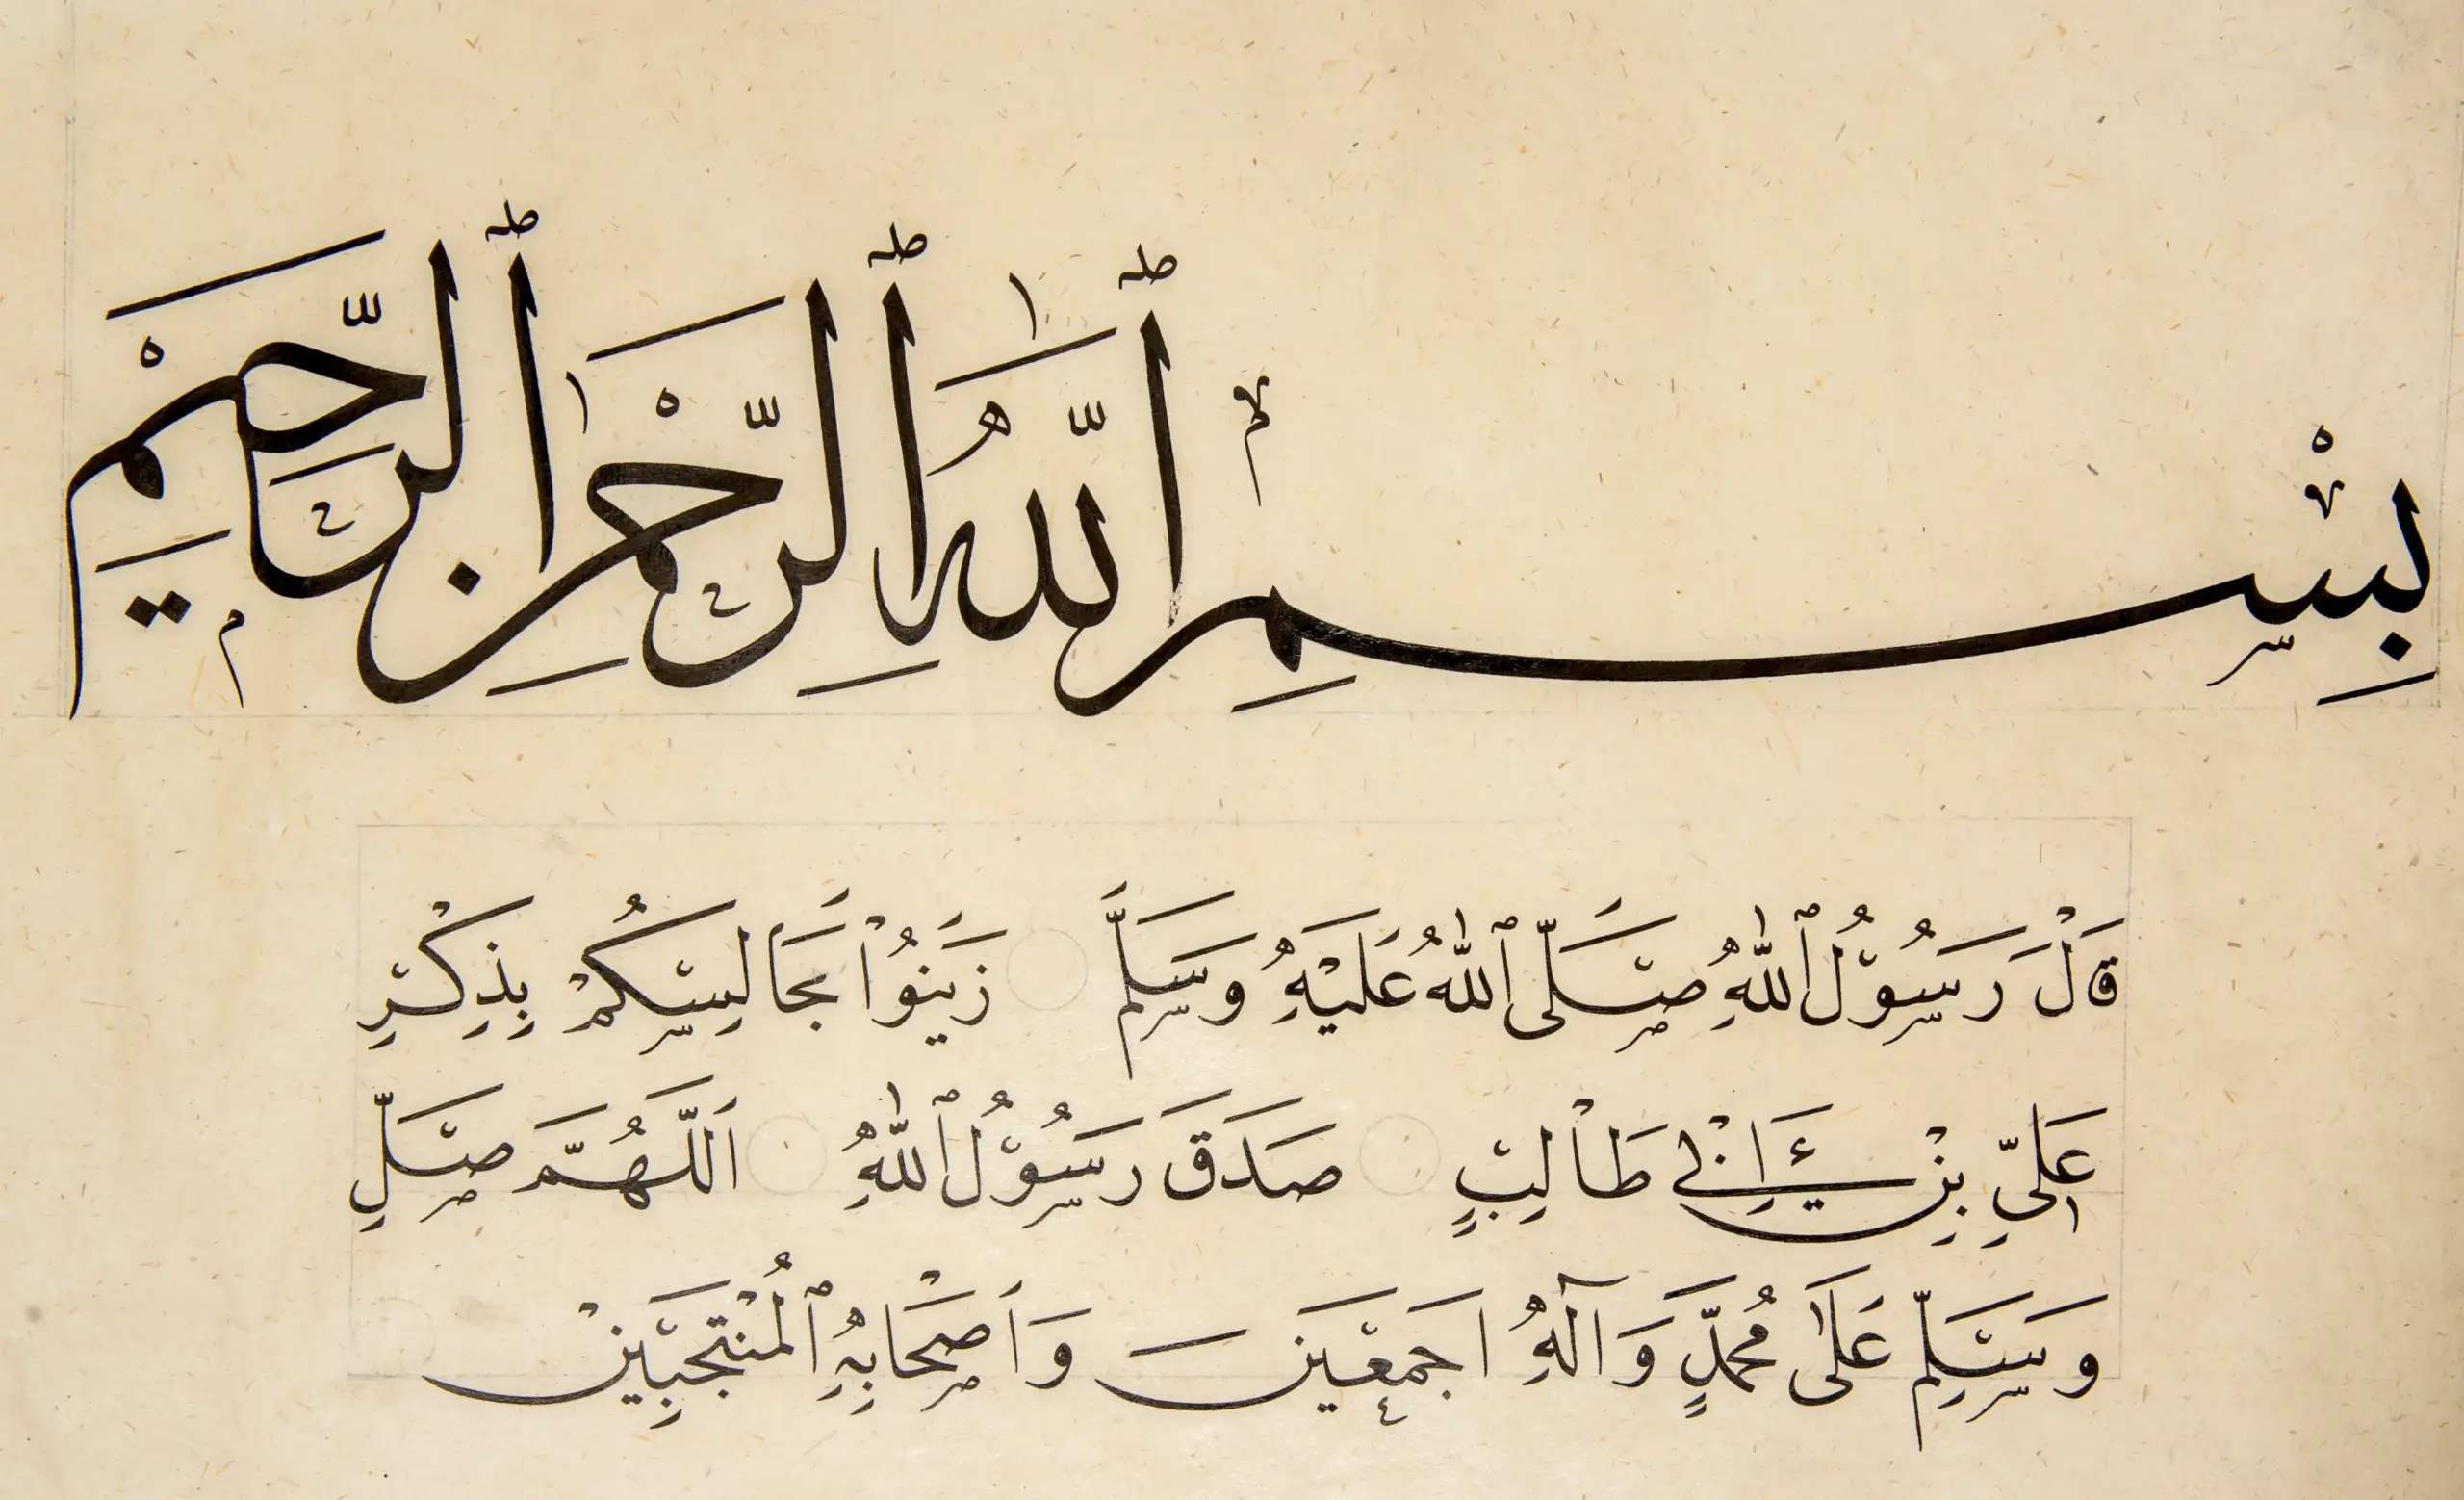 بِسْمِ ٱللَّهِ ٱلرَّحْمٰنِ ٱلرَّحِيْمِ
قَالْ رَسُوْلُ ٱللّٰهِ صَلَّى ٱللّٰهُ عَلَيْهِ وَسَلَّمَ زَيِّنُوْا مَجَالِسَكُمْ بِذِكْرِ
عَلِيِّ بْنِ اَبْي طَالِبٍ صَدَقَ رَسُوْلُ ٱللّٰهِ اَللَّهُمَّ صَلِّ
وَسَلِّمْ عَلَى مُحَمَّدٍ وَآلِهِ اَجْمَعِيَنَ وَاَصْحَابِهِ ٱلْمُنْتَجَبِيَنْ